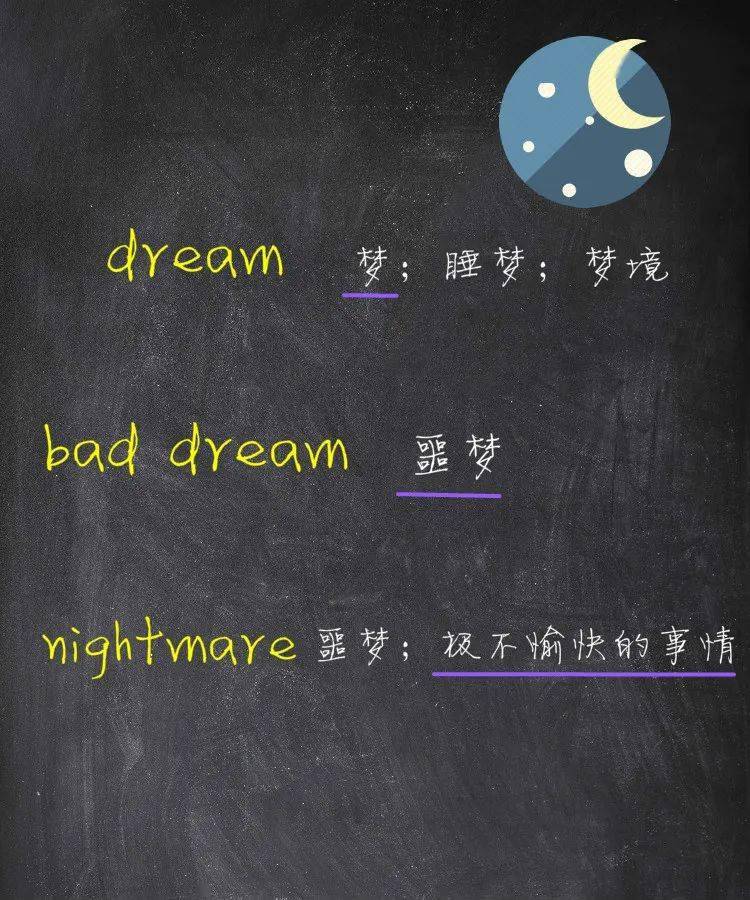 dream 梦；睡梦；梦境
bad dream 噩梦
nightmare 噩梦；极不愉快的事情